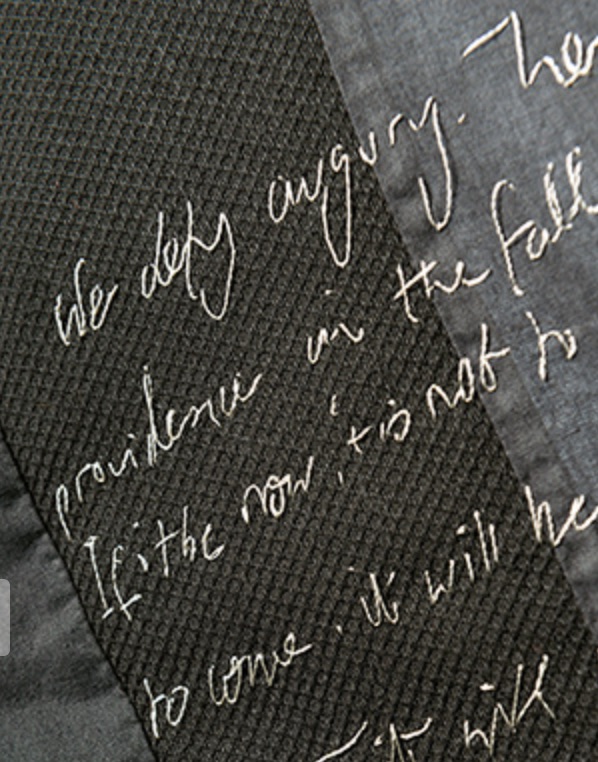 We defy augury. The
providence in the fall
If it be now, 'tis not to
to come, it will be
it will